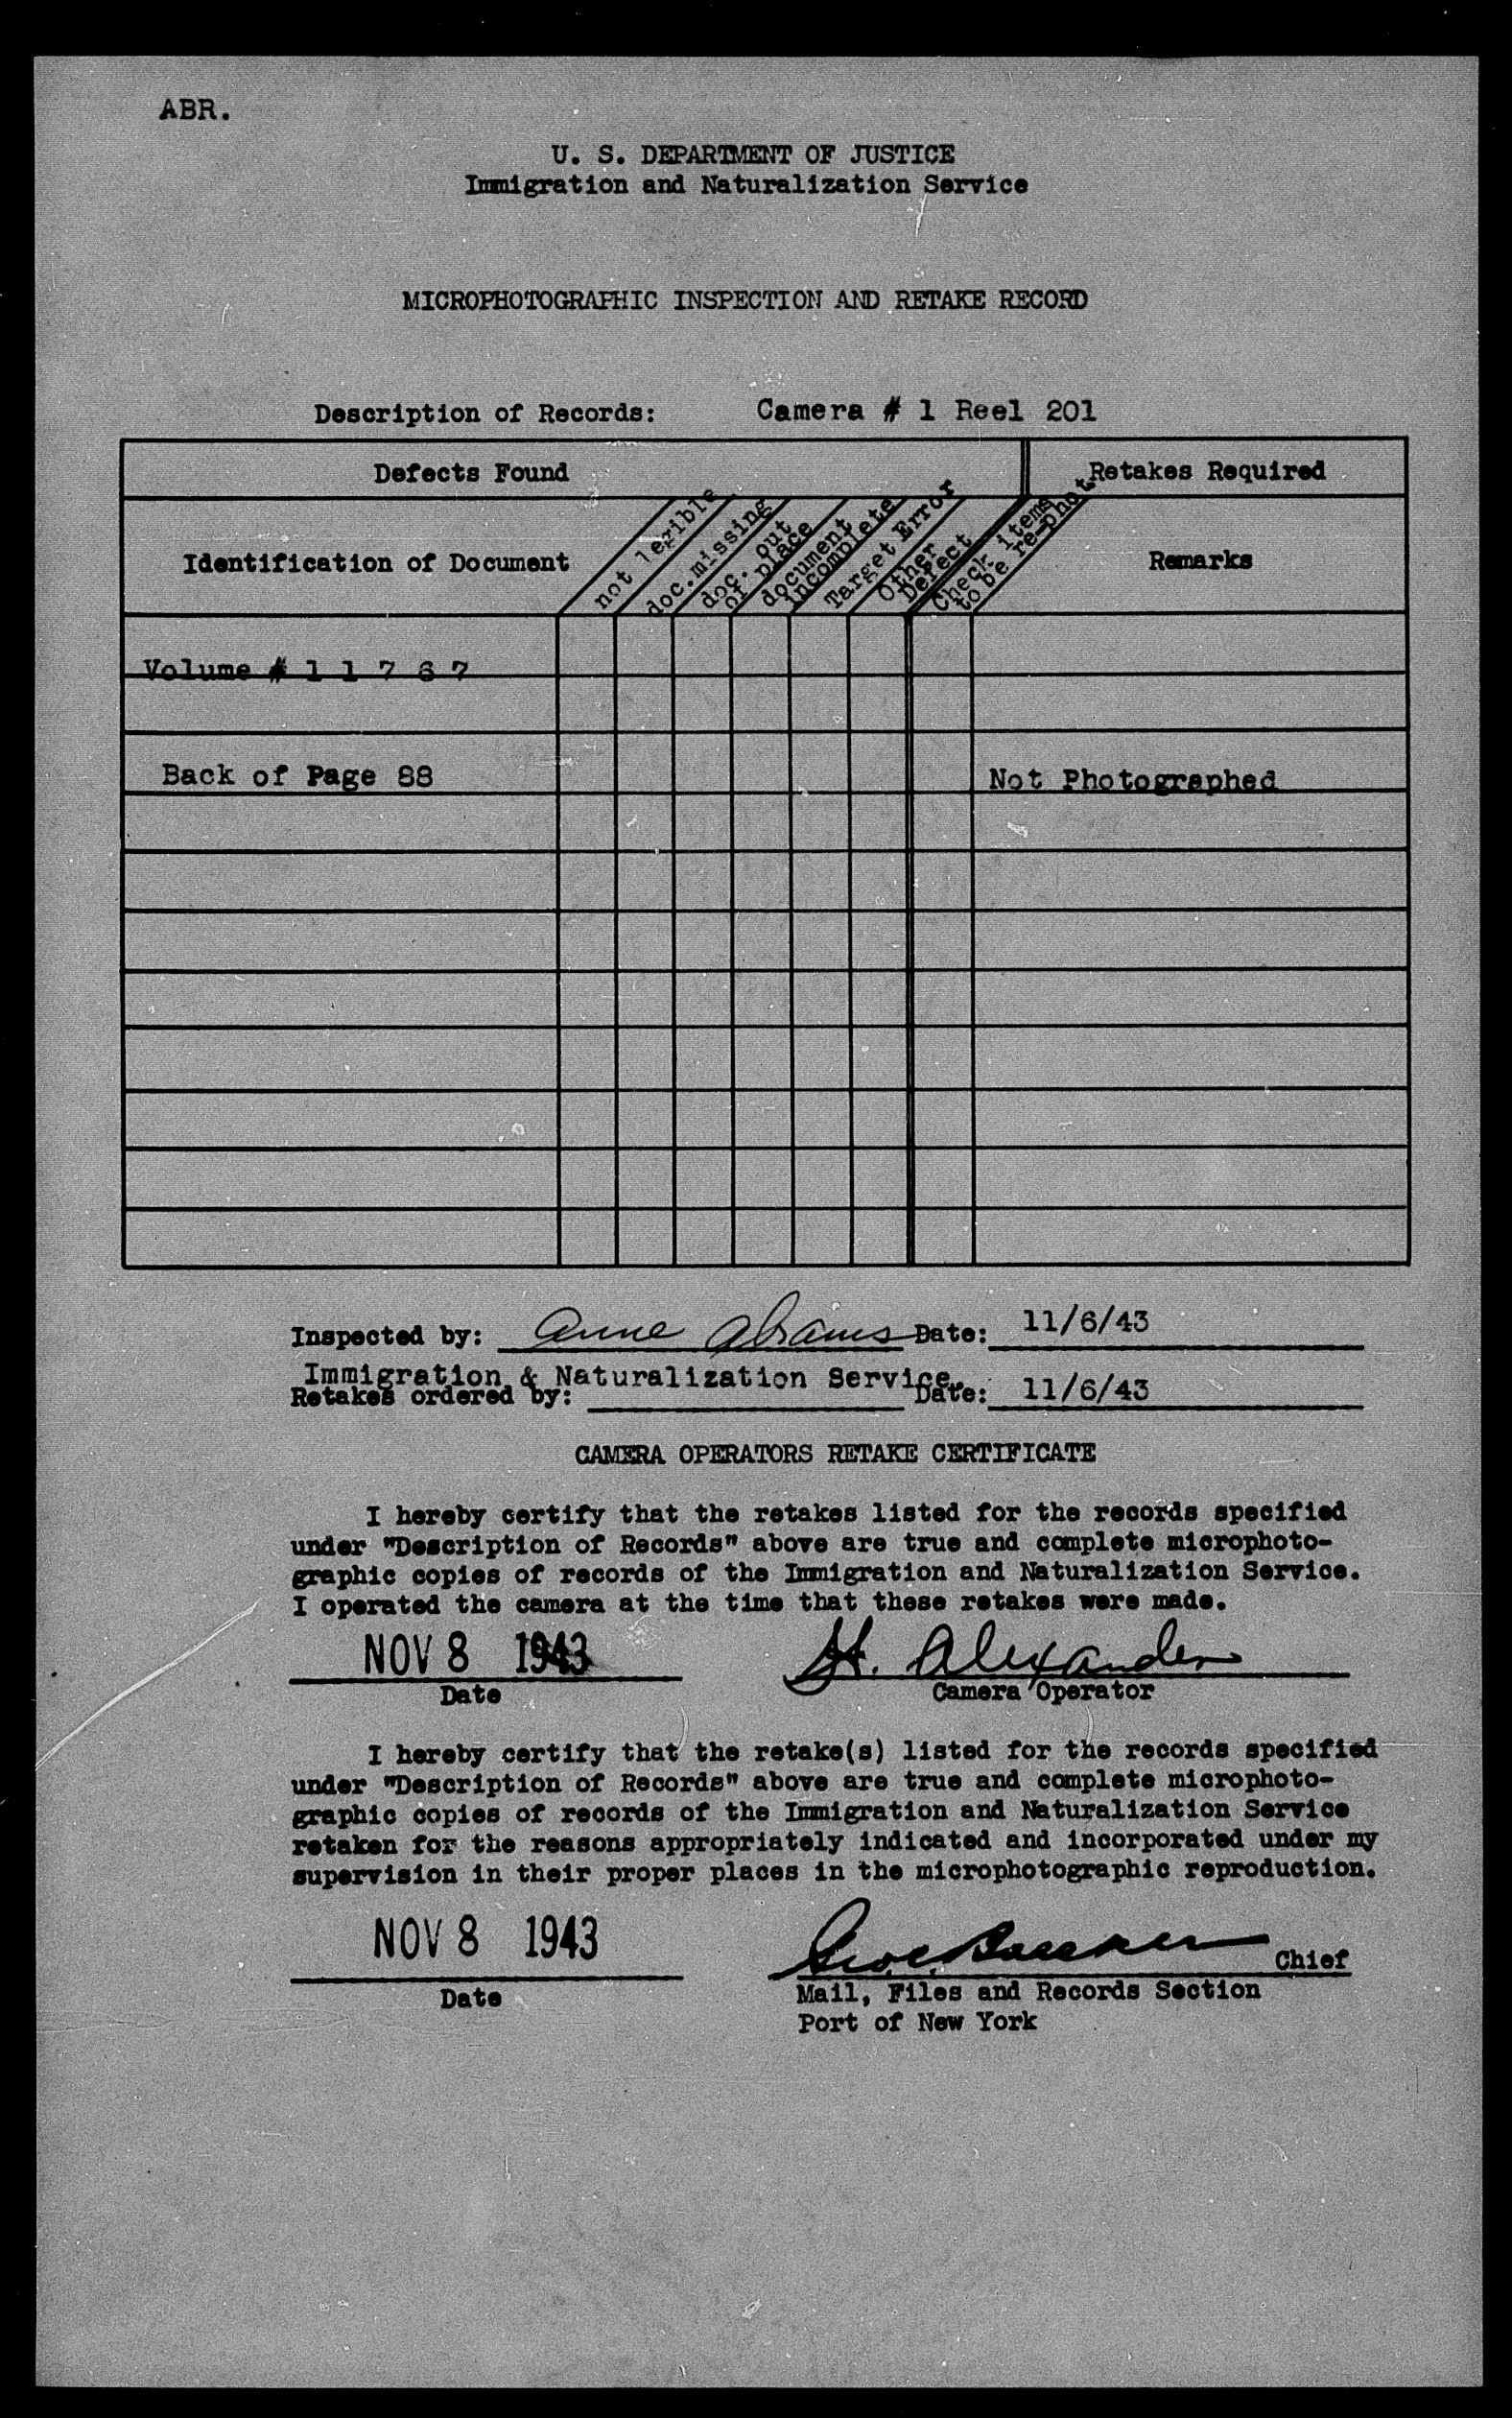 ABR.
U. S. DEPARTMENT OF JUSTICE
Immigration and Naturalization Service
MICROPHOTOGRAPHIC INSPECTION AND RETAKE RECORD
Description of Records: Camera # 1 Reel 201
Defects Found
Retakes Required
Identification of Document
not legible
doc. missing
doc. out
of place
document
incomplete
Target Error
Other
Defect
Check items
to be re-phot.
Remarks
Volume # 1 1 7 6 7
Back of Page 88
Not Photographed
Inspected by: Anne Abrams Date: 11/6/43
Immigration & Naturalization Service.
Retakes ordered by: Date: 11/6/43
CAMERA OPERATORS RETAKE CERTIFICATE
I hereby certify that the retakes listed for the records specified
under "Description of Records" above are true and complete microphoto-
graphic copies of records of the Immigration and Naturalization Service.
I operated the camera at the time that these retakes were made.
NOV 8 1943 H. Alexander
Date Camera Operator
I hereby certify that the retake(s) listed for the records specified
under "Description of Records" above are true and complete microphoto-
graphic copies of records of the Immigration and Naturalization Service
retaken for the reasons appropriately indicated and incorporated under my
supervision in their proper places in the microphotographic reproduction.
NOV 8 1943
Chief
Date
Mail, Files and Records Section
Port of New York